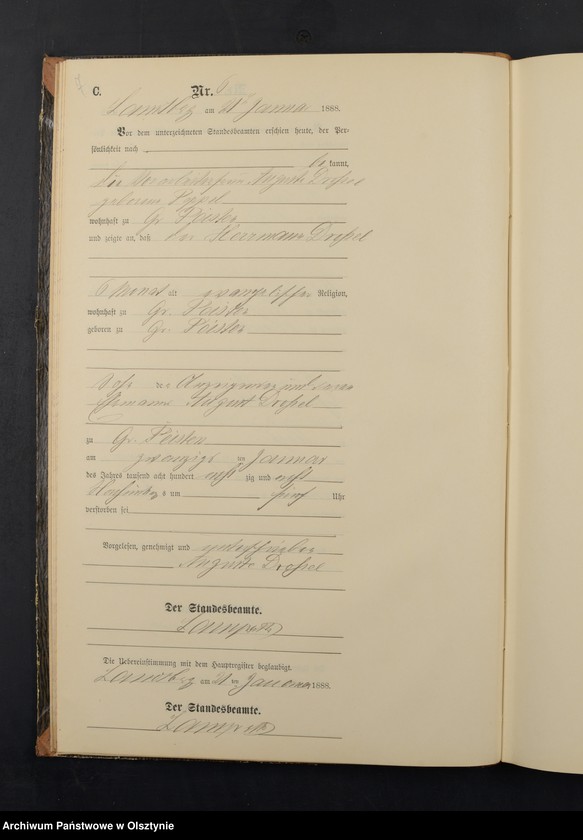 C. Nr. 6
Landsberg am 21 Januar 1888.
Vor dem unterzeichneten Standesbeamten erschien heute, der Per-
sönlichkeit nach
be kannt,
die Auguste Drossel
geborene
wohnhaft zu Gr. Peisten
und zeigte an, daß der Herrmann Drossel
6 Monat alt evangelischer Religion,
wohnhaft zu Gr. Peisten
geboren zu Gr. Peisten
Sohn der Anzeigenden und seines
Ehemannes August Drossel
zu Gr. Peisten
am zwanzigs ten Januar
des Jahres tausend acht hundert acht zig und acht
Nachmittags um fünf Uhr
verstorben sei
Vorgelesen, genehmigt und unterschrieben
Auguste Drossel
Der Standesbeamte.
Die Uebereinstimmung mit dem Hauptregister beglaubigt.
Landsberg am 21 ten Januar 1888.
Der Standesbeamte.
Archiwum Państwowe w Olsztynie